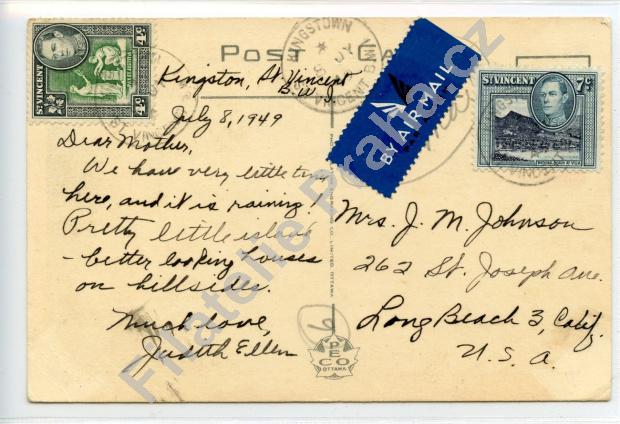 POST CA
ST VINCENT
4c
4c
KINGSTOWN
JY
ST. VINCENT
BY AIR MAIL
ST. VINCENT 7c
Kingston, St. Vincent
B.W.I.
July 8, 1949
Dear Mother,
We have very little time
here, and it is raining!
Pretty little island
- better looking houses
on hillsides.
Much love,
Judith Ellen
Mrs. J. M. Johnson
262 St. Joseph Ave.
Long Beach 3, Calif.
U.S.A.
PECO
OTTAWA
Filatelie Praha.cz